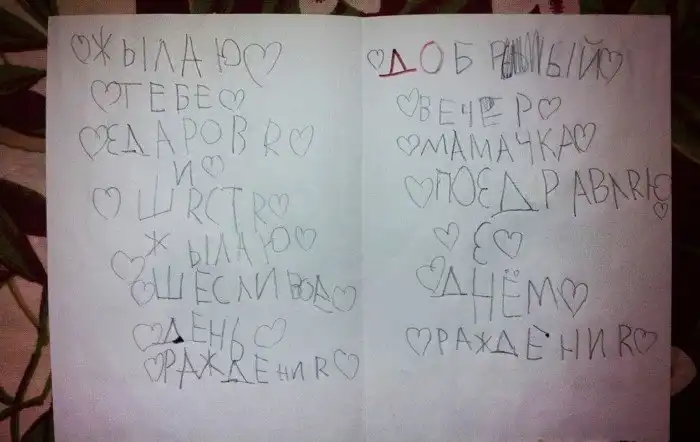 ЖЫЛАЮ
ТЕБЕ
ЗДАРОВЯ
И
ШЯСТЯ
ЖЫЛАЮ
ДЕНЬ
РАЖДЕНИЯ
ДОБРЫЙ
ВЕЧЕР
МАМАЧКА
ПОЗДРАВЛЯЮ
З
ДНЁМ
РАЖДЕНИЯ